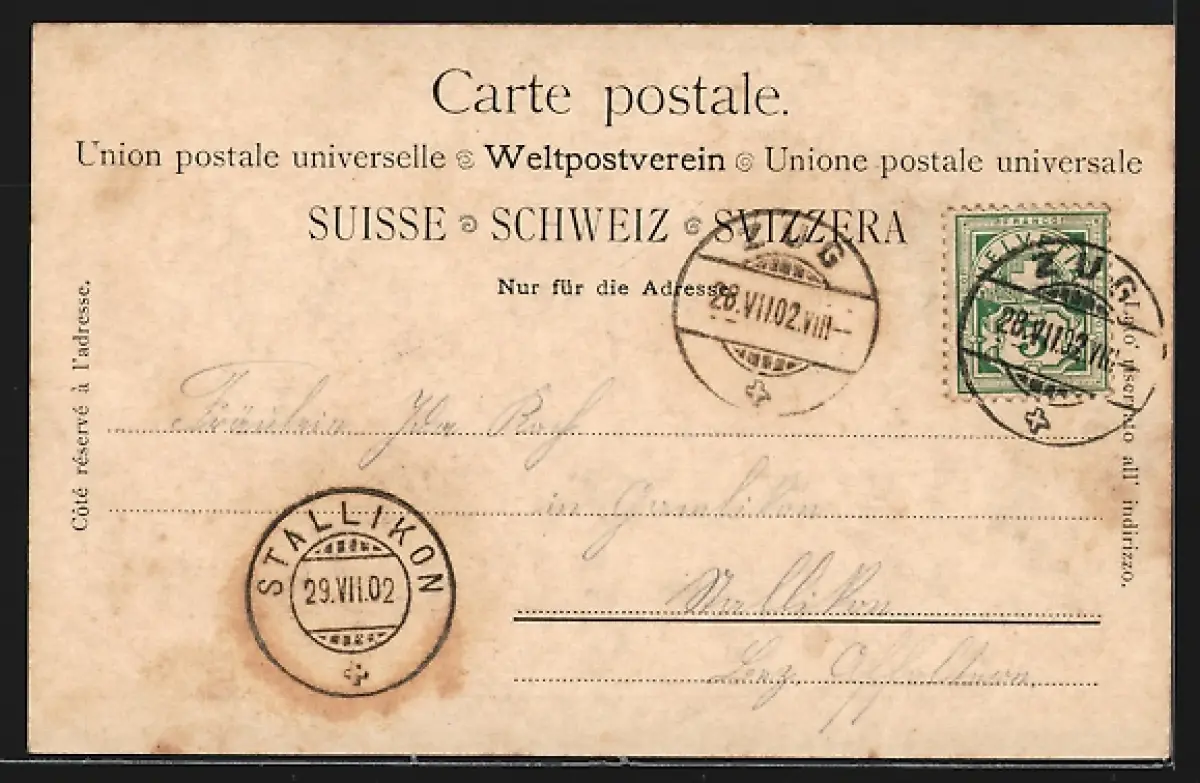 Carte postale.
Union postale universelle Weltpostverein Unione postale universale
SUISSE SCHWEIZ SVIZZERA
Nur für die Adresse
Côté réservé à l'adresse.
riservato all' indirizzo.
ZUG
28.VII.02.VIII
FRANCO
HELVETIA
5
ZUG
28.VII.02.VIII
Fräulein Ida
in
Stallikon
STALLIKON
29.VII.02